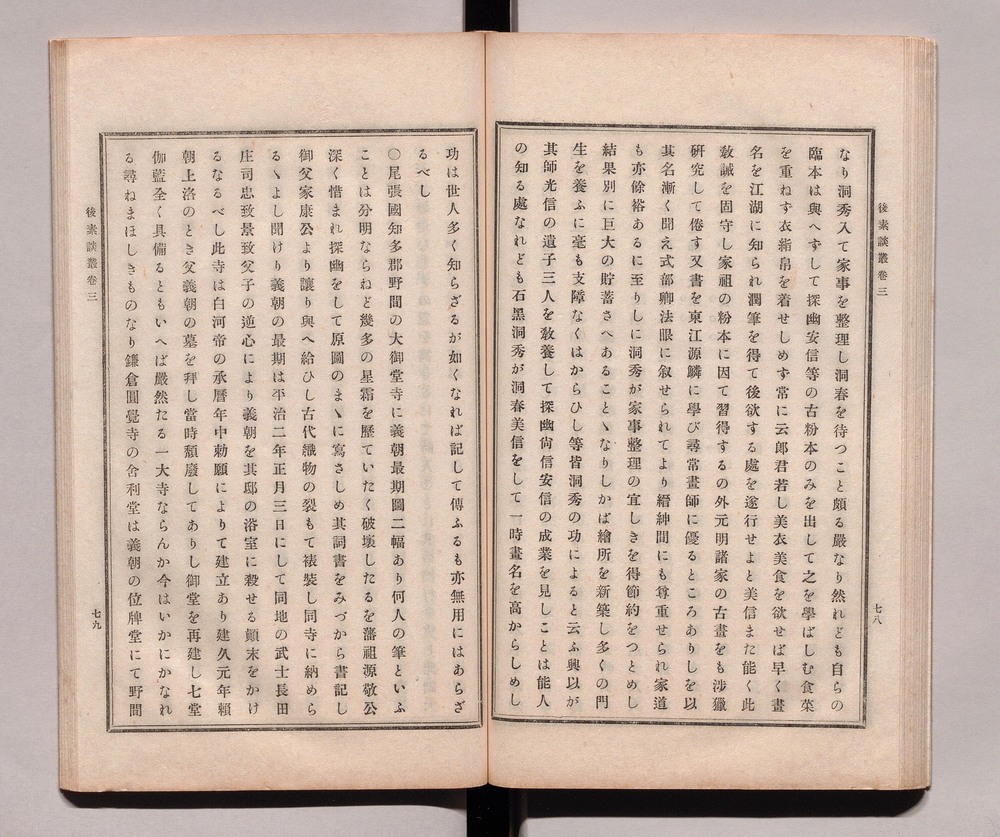 後素談叢卷三
七八
なり洞秀入て家事を整理し洞春を待つこと頗る嚴なり然れども自らの
臨本は與へずして探幽安信等の古粉本のみを出して之を學ばしむ食菜
を重ねず衣絹帛を着せしめず常に云郎君若し美衣美食を欲せば早く畫
名を江湖に知られ潤筆を得て後欲する處を遂行せよと美信また能く此
敎誡を固守し家祖の粉本に因て習得するの外元明諸家の古畫をも涉獵
硏究して倦す又書を東江源鱗に學び尋常畫師に優るところありしを以
其名漸く聞え式部卿法眼に叙せられてより縉紳間にも尊重せられ家道
も亦餘裕あるに至りしに洞秀が家事整理の宜しきを得節約をつとめし
結果別に巨大の貯蓄さへあることゝなりしかば繪所を新築し多くの門
生を養ふに毫も支障なくはからひし等皆洞秀の功によると云ふ興以が
其師光信の遺子三人を敎養して探幽尙信安信の成業を見しことは能人
の知る處なれども石黑洞秀が洞春美信をして一時畫名を高からしめし
功は世人多く知らざるが如くなれば記して傳ふるも亦無用にはあらざ
るべし
〇尾張國知多郡野間の大御堂寺に義朝最期圖二幅あり何人の筆といふ
ことは分明ならねど幾多の星霜を歷ていたく破壞したるを藩祖源敬公
深く惜まれ探幽をして原圖のまゝに寫さしめ其詞書をみづから書記し
御父家康公より讓り與へ給ひし古代織物の裂もて裱裝し同寺に納めら
るゝよし聞けり義朝の最期は平治二年正月三日にして同地の武士長田
庄司忠致景致父子の逆心により義朝を其邸の浴室に殺せる顚末をかけ
るなるべし此寺は白河帝の承曆年中勅願によりて建立あり建久元年賴
朝上洛のとき父義朝の墓を拜し當時頽廢してありし御堂を再建し七堂
伽藍全く具備るともいへば嚴然たる一大寺ならんか今はいかにかなれ
る尋ねまほしきものなり鎌倉圓覺寺の舍利堂は義朝の位牌堂にて野間
後素談叢卷三
七九